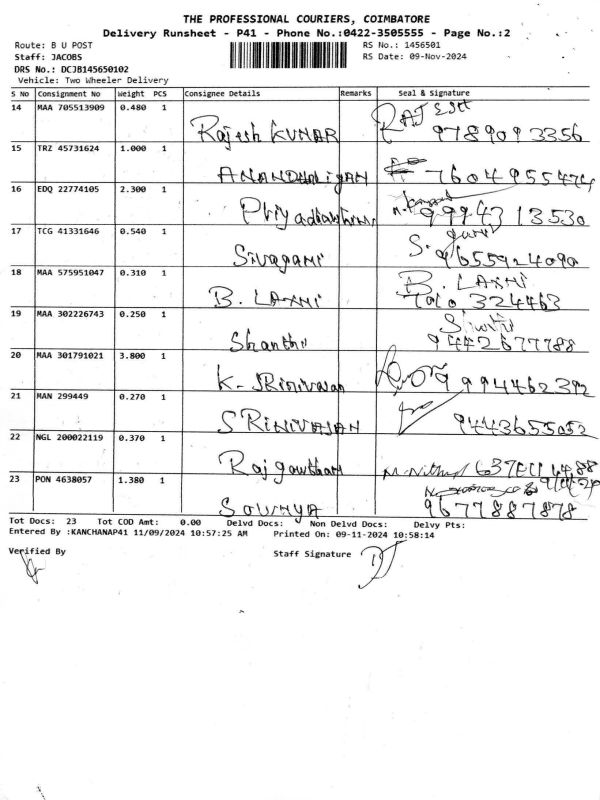 THE PROFESSIONAL COURIERS, COIMBATORE
Delivery Runsheet - P41 - Phone No.:0422-3505555 - Page No.:2
Route: B U POST
RS No.: 1456501
Staff: JACOBS
RS Date: 09-Nov-2024
DRS No.: DCJB145650102
Vehicle: Two Wheeler Delivery
S No Consignment No Weight PCS Consignee Details Remarks Seal & Signature
14 MAA 705513909 0.480 1
Rajesh KUMAR 9789093356
15 TRZ 45731624 1.000 1
7604955474
16 EDQ 22774105 2.300 1
9994313530
17 TCG 41331646 0.540 1
Sivagami 9655924090
18 MAA 575951047 0.310 1 B. LAXMI
B. LAXMI 324463
19 MAA 302226743 0.250 1
Shanthi 9442677788
20 MAA 301791021 3.800 1
K. SRinivasan 9994462392
21 MAN 299449 0.270 1
SRINIVASAN 9443655052
22 NGL 200022119 0.370 1
Rajgowtham
23 PON 4638057 1.380 1
SOWMYA 9677887878
Tot Docs: 23 Tot COD Amt: 0.00 Delvd Docs: Non Delvd Docs: Delvy Pts:
Entered By :KANCHANAP41 11/09/2024 10:57:25 AM Printed On: 09-11-2024 10:58:14
Verified By Staff Signature